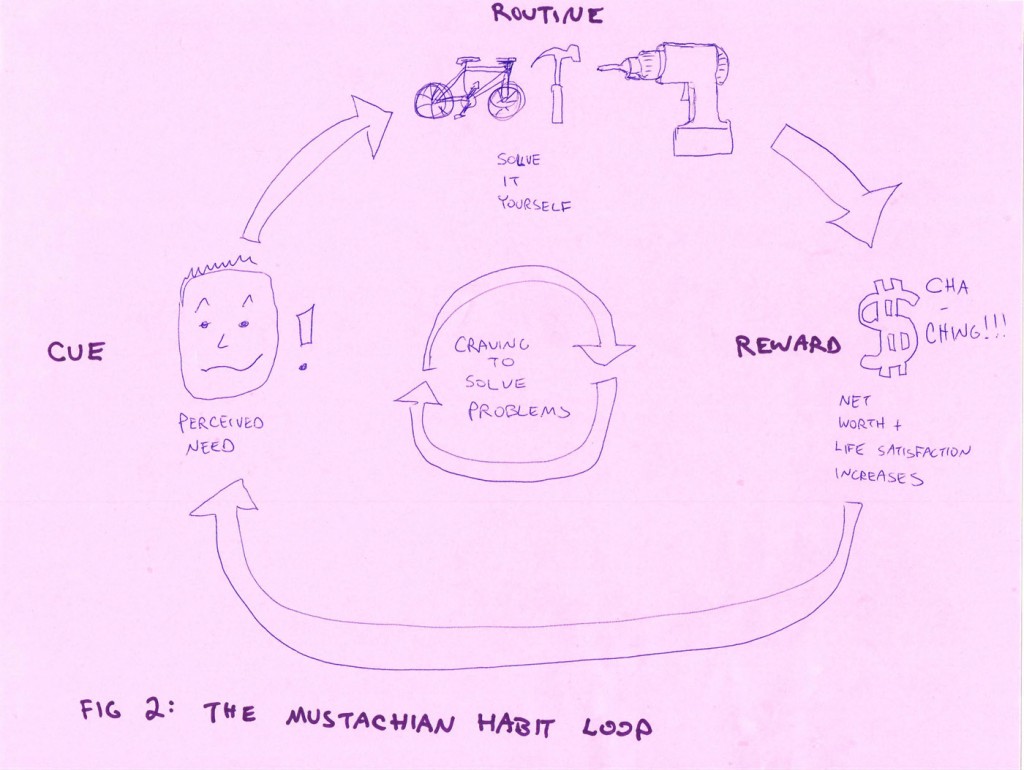 ROUTINE
SOLVE
IT
YOURSELF
CUE
!
PERCEIVED
NEED
CRAVING
TO
SOLVE
PROBLEMS
REWARD
$
CHA
-
CHING!!!
NET
WORTH +
LIFE SATISFACTION
INCREASES
FIG 2: THE MUSTACHIAN HABIT LOOP